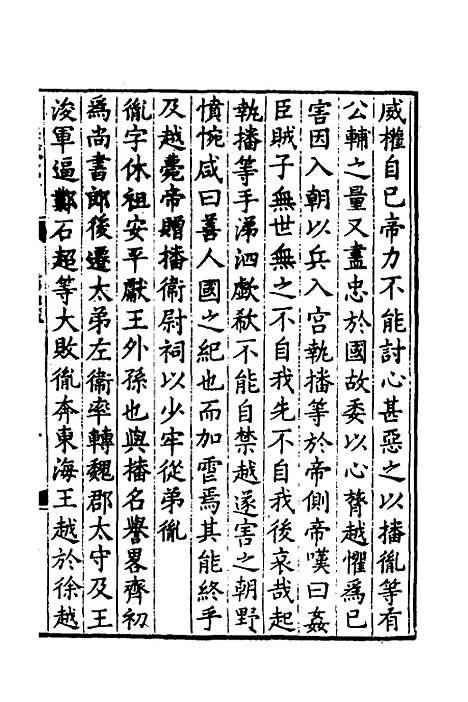 威權自已帝力不能討心甚惡之以播胤等有
公輔之量又盡忠於國故委以心膂越懼爲已
害因入朝以兵入宫執播等於帝側帝嘆曰姦
臣賊子無世無之不自我先不自我後哀哉起
執播等手涕泗歔欷不能自禁越遂害之朝野
憤惋咸曰善人國之紀也而加虐焉其能終乎
及越薨帝贈播衛尉祠以少牢從弟胤
胤字休祖安平獻王外孫也與播名譽畧齊初
爲尚書郎後遷太弟左衛率轉魏郡太守及王
浚軍逼鄴石超等大敗胤奔東海王越於徐越